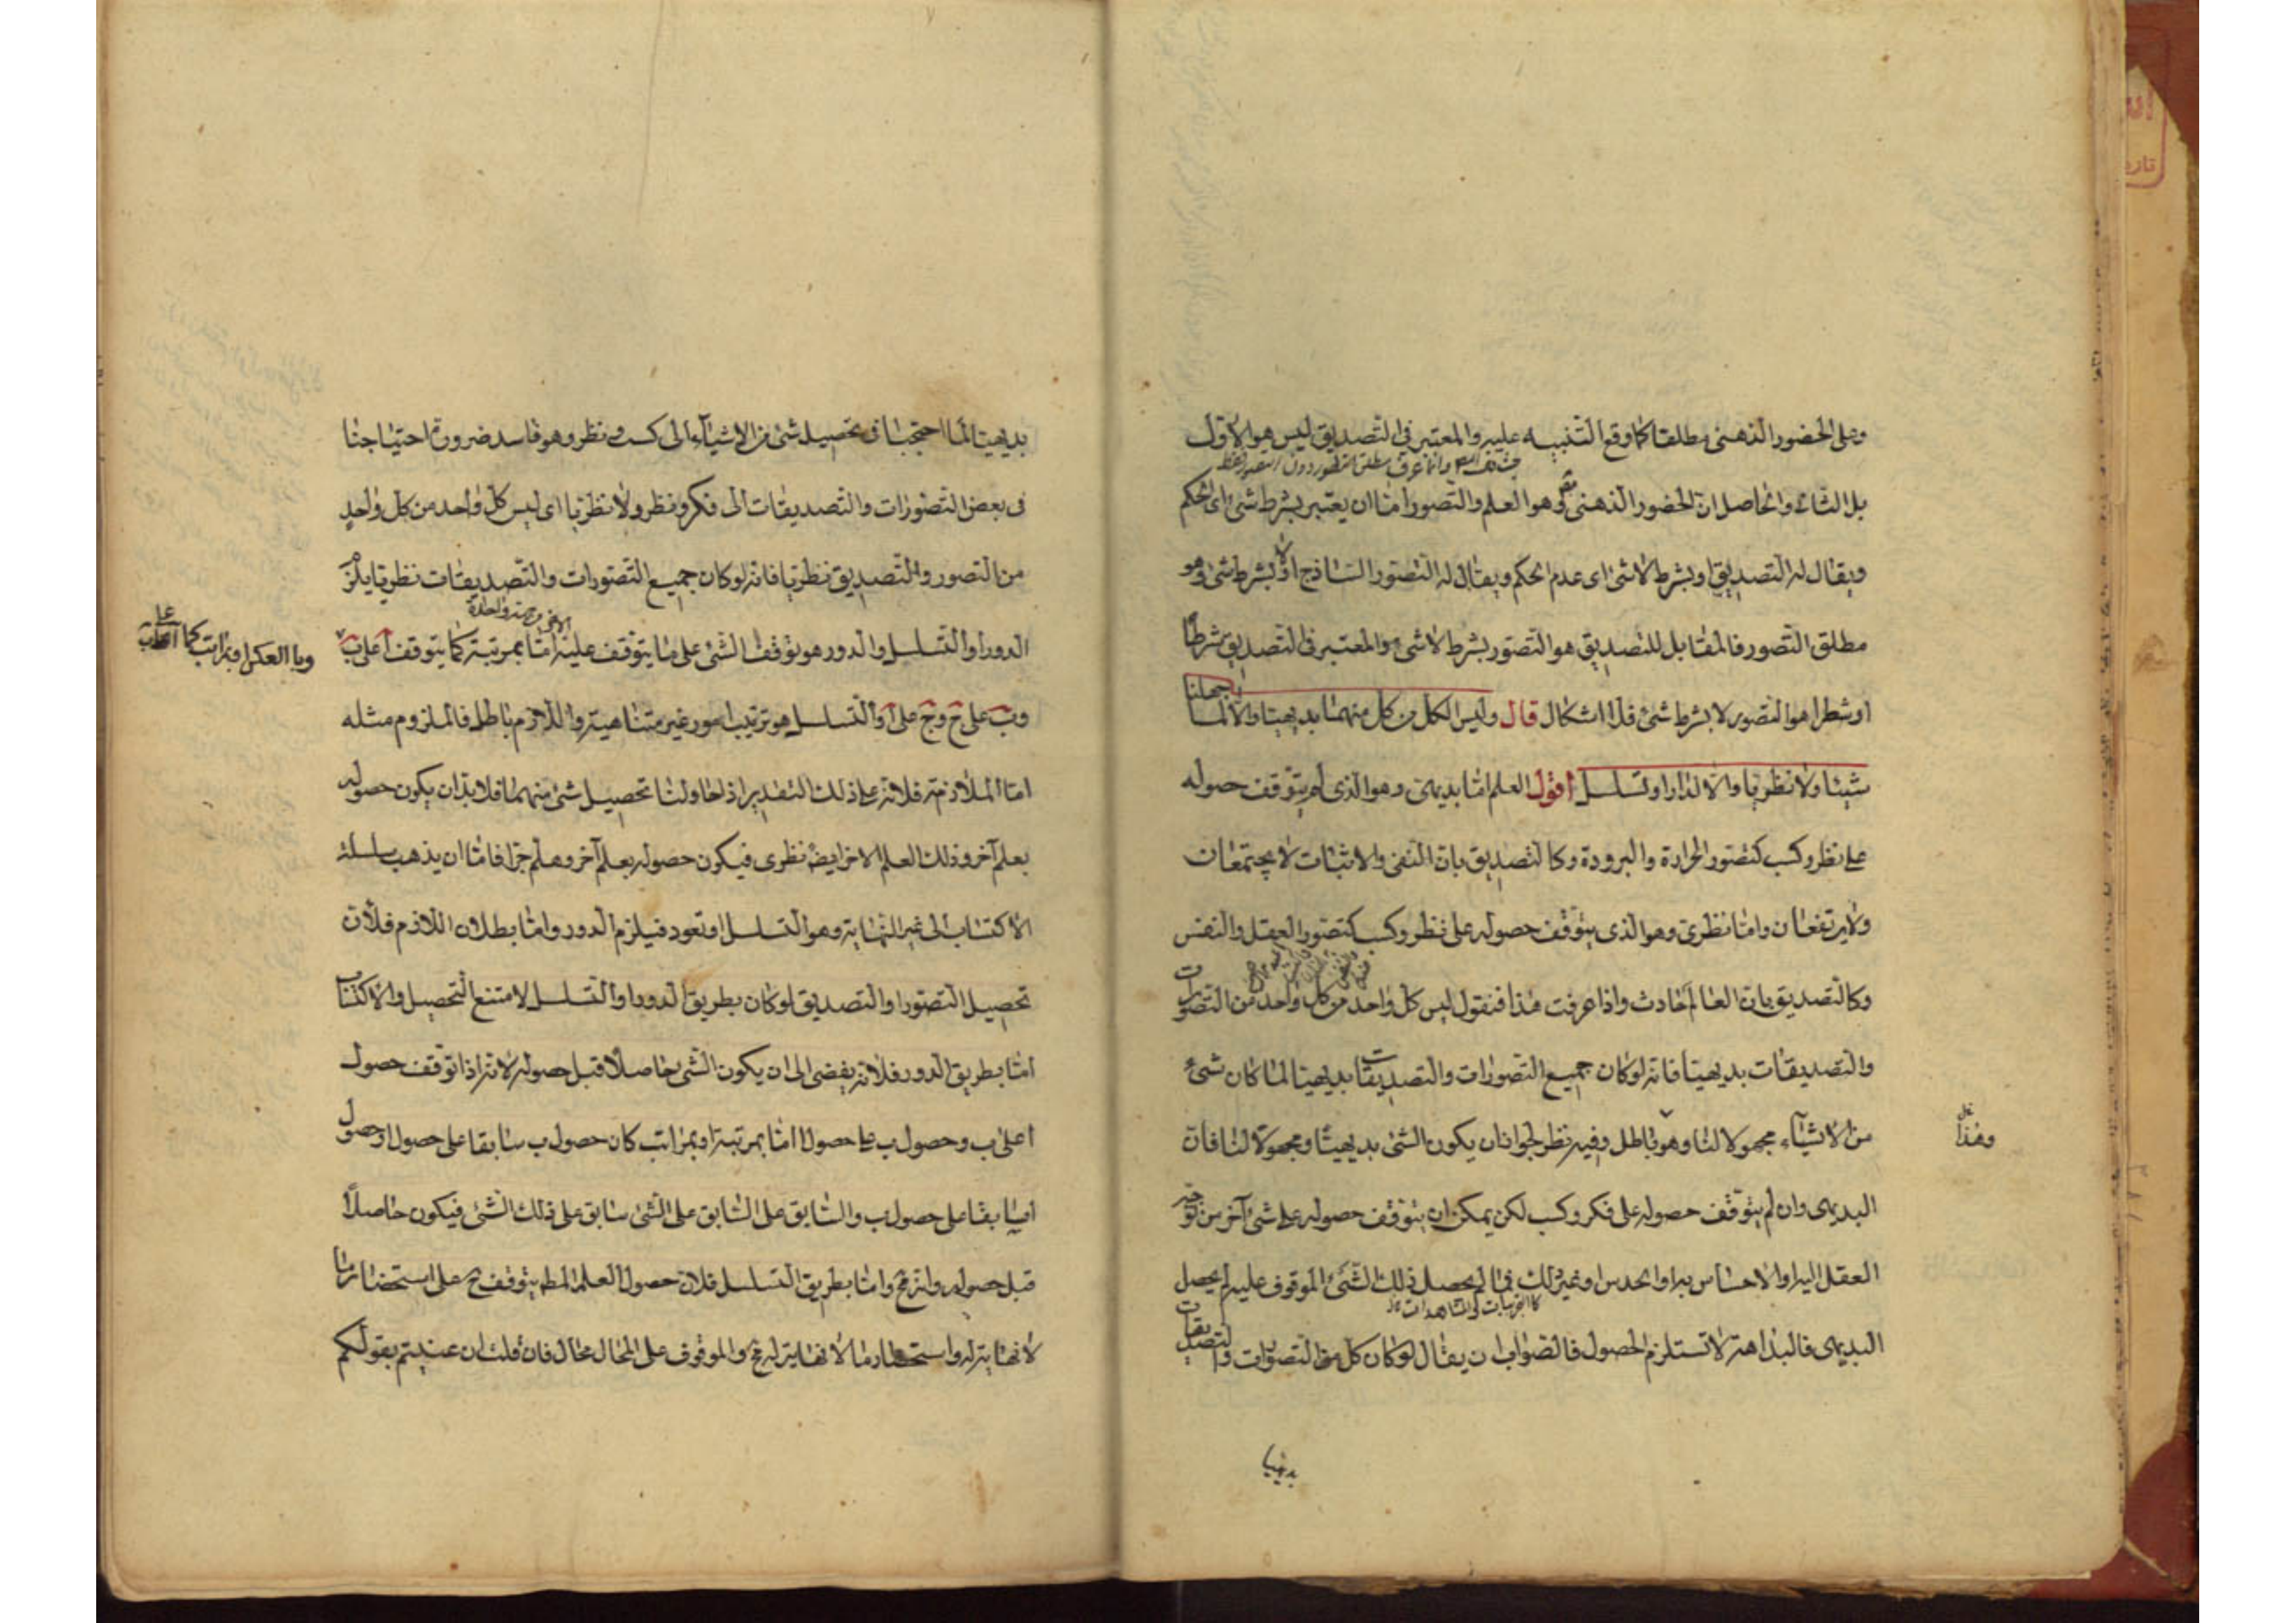 وعلى الحضور الذهنى مطلقا كما وقع التنبيه عليه والمعتبر فى التصديق ليس هو الاول
بل الثانى والحاصل ان الحضور الذهنى هو العلم والتصور اما ان يعتبر بشرط شئ اى الحكم
ويقال له التصديق او بشرط لا شئ اى عدم الحكم ويقال له التصور الساذج او لا بشرط شئ وهو
مطلق التصور فالمقابل للتصديق هو التصور بشرط لا شئ والمعتبر فى التصديق شرطا
او شطرا هو التصور لا بشرط شئ فلا اشكال قال وليس الكل من كل منهما بديهيا والا لما جهلنا
شيئا ولا نظريا والا لدار او تسلسل اقول العلم اما بديهى وهو الذى لم يتوقف حصوله
على نظر وكسب كتصور الحرارة والبرودة وكالتصديق بان النفى والاثبات لا يجتمعان
ولا يرتفعان واما نظرى وهو الذى يتوقف حصوله على نظر وكسب كتصور العقل والنفس
وكالتصديق بان العالم حادث واذا عرفت هذا فنقول ليس كل واحد من كل واحد من التصورات
والتصديقات بديهيا فانه لو كان جميع التصورات والتصديقات بديهيا لما كان شئ
من الاشياء مجهولا لنا وهو باطل وفيه نظر لجواز ان يكون الشئ بديهيا ومجهولا لنا فان
وهذا
البديهى وان لم يتوقف حصوله على فكر وكسب لكن يمكن ان يتوقف حصوله على شئ آخر من توجه
العقل اليه او الاحساس به او الحدس او غير ذلك فما لم يحصل ذلك الشئ الموقوف عليه لم يحصل
كالتجربيات والمشاهدات
البديهى فالبداهة لا تستلزم الحصول فالصواب ان يقال لو كان كل من التصورات والتصديقات
بديهيا
بديهيا لما احتجنا فى تحصيل شئ من الاشياء الى كسب ونظر وهو فاسد ضرورة احتياجنا
فى بعض التصورات والتصديقات الى فكر ونظر ولا نظريا اى ليس كل واحد من كل واحد
من التصور والتصديق نظريا فانه لو كان جميع التصورات والتصديقات نظريا يلزم
الدور او التسلسل والدور هو توقف الشئ على ما يتوقف عليه اما بمرتبة كما يتوقف ا على ب
وبالعكس او بمراتب كما
وب على ج وج على ا والتسلسل هو ترتيب امور غير متناهية واللازم باطل فالملزوم مثله
اما الملازمة فلانه على ذلك التقدير اذا حاولنا تحصيل شئ منهما فلا بد ان يكون حصوله
بعلم آخر وذلك العلم الاخر ايضا نظرى فيكون حصوله بعلم آخر وهلم جرا فاما ان يذهب سلسلة
الاكتساب الى غير النهاية وهو التسلسل او تعود فيلزم الدور واما بطلان اللازم فلان
تحصيل التصور او التصديق لو كان بطريق الدور او التسلسل لامتنع التحصيل والاكتساب
اما بطريق الدور فلانه يفضى الى ان يكون الشئ حاصلا قبل حصوله لانه اذا توقف حصول
ا على ب وحصول ب على حصول ا اما بمرتبة او بمراتب كان حصول ب سابقا على حصول ا وحصول
ا سابقا على حصول ب والسابق على السابق على الشئ سابق على ذلك الشئ فيكون حاصلا
قبل حصوله وانه مح واما بطريق التسلسل فلان حصول العلم المط يتوقف ح على استحضار ما
لا نهاية له واستحضار ما لا نهاية له مح والموقوف على المحال محال فان قلت ان عنيتم بقولكم